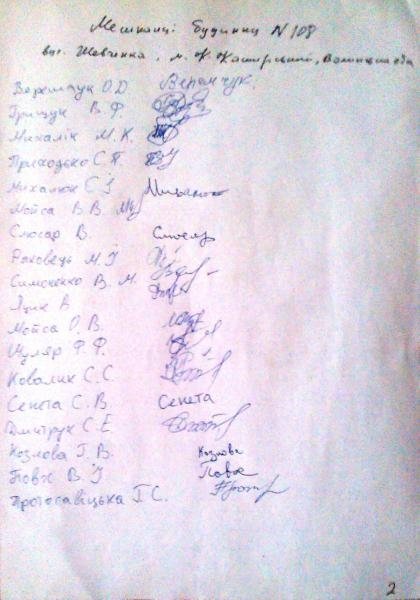 Мешканці будинку N 108
вул. Шевченка, м. К. Каширський, Волинська обл
Веремчук О.Д. Веремчук.
Грищук В. Ф.
Михалік М. К.
Приходько С. П.
Михалюк С. І
Мойса В. В.
Слюсар В. Слюсар
Раковець М. І
Симоненко В. М.
Яцик А
Мойса О. В.
Муляр Ф. Ф.
Ковалик С. С.
Сенета С. В. Сенета
Дмитрук С. Е
Козлова Г. В. Козлова
Повх В. І Повх
Протосавіцька Г. С.
2